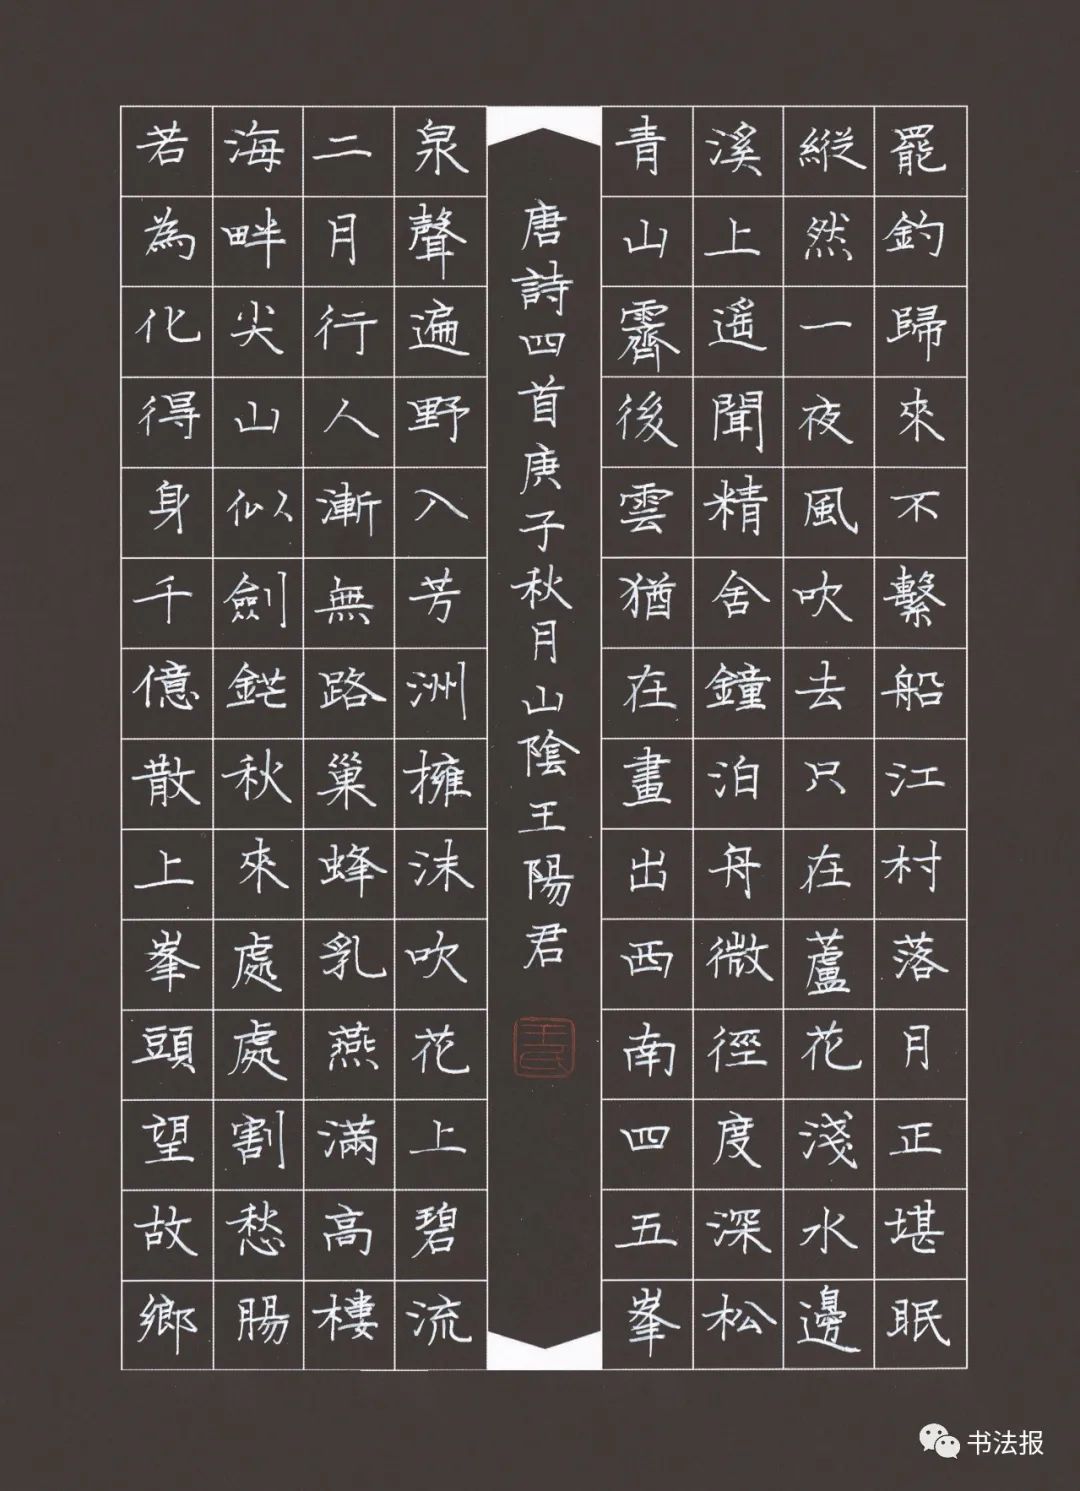 罷釣歸來不繫船江村落月正堪眠
縱然一夜風吹去只在蘆花淺水邊
溪上遥聞精舍鐘泊舟微徑度深松
青山霽後雲猶在畫出西南四五峯
唐詩四首庚子秋月山陰王陽君
王氏
泉聲遍野入芳洲擁沫吹花上碧流
二月行人漸無路巢蜂乳燕滿高樓
海畔尖山似劍鋩秋來處處割愁腸
若為化得身千億散上峯頭望故鄉
书法报